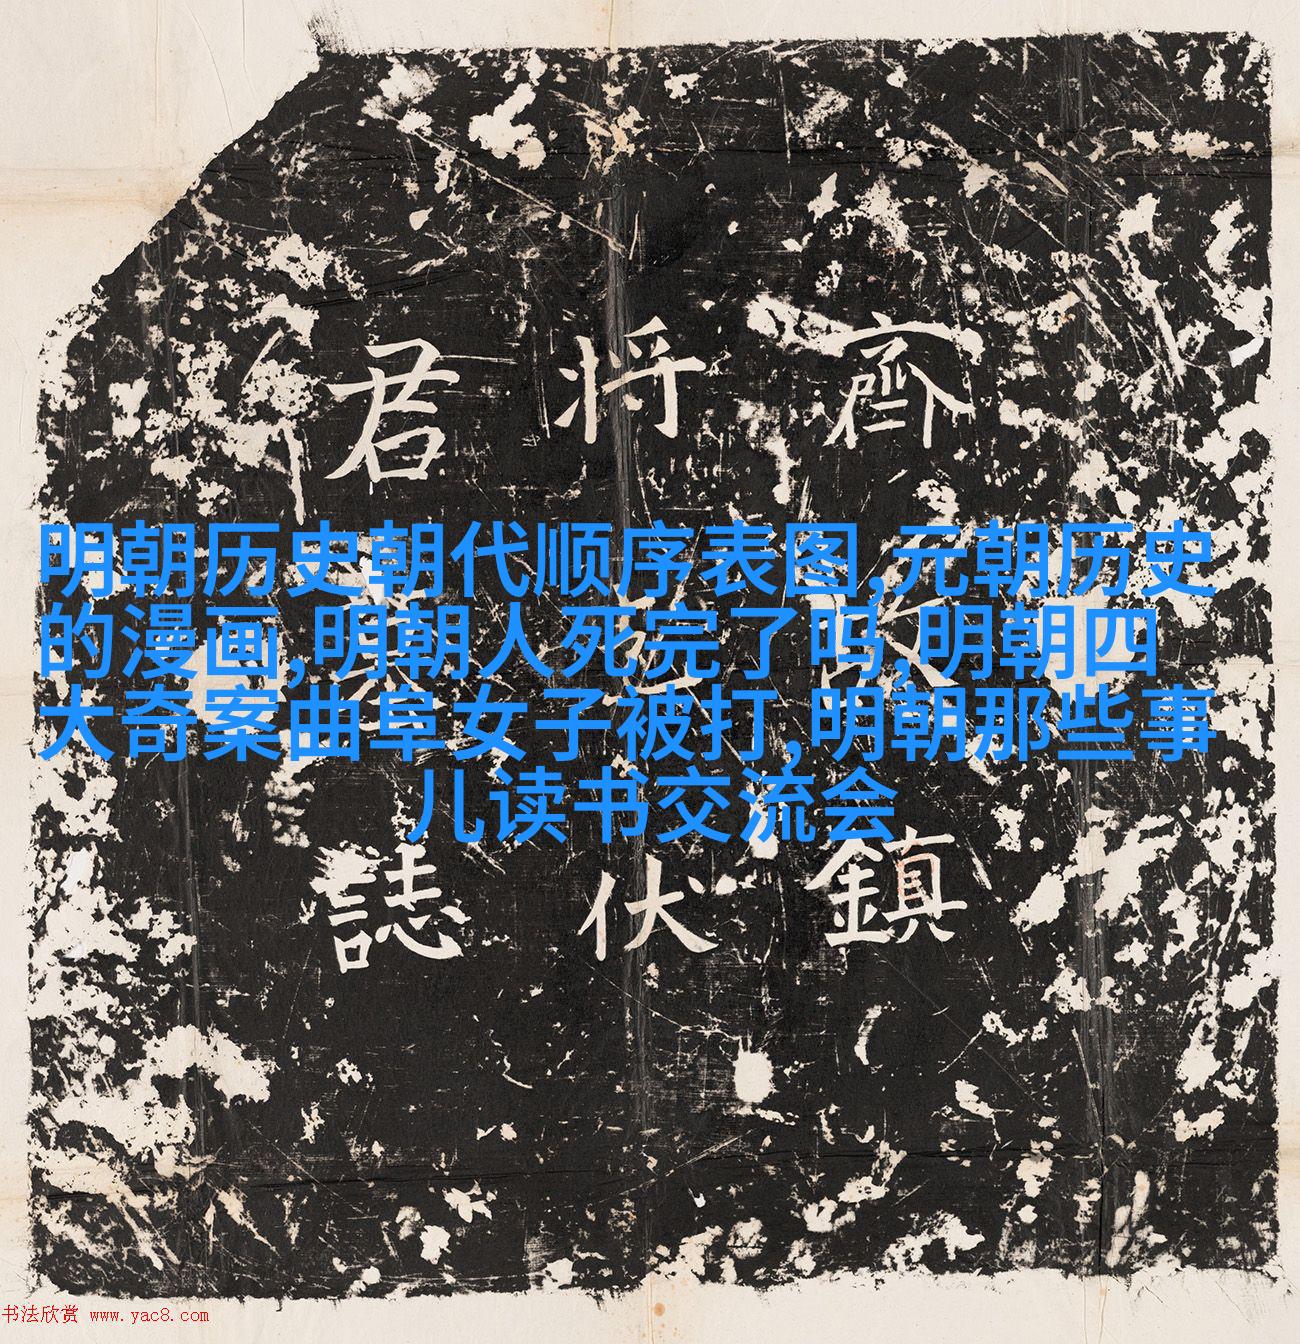 齊 鎮
将 伏
君 誌
明朝历史朝代顺序表图,元朝历史
的漫画,明朝人死完了吗,明朝四
大奇案曲阜女子被打,明朝那些事
儿读书交流会
书法欣赏 www.yac8.com